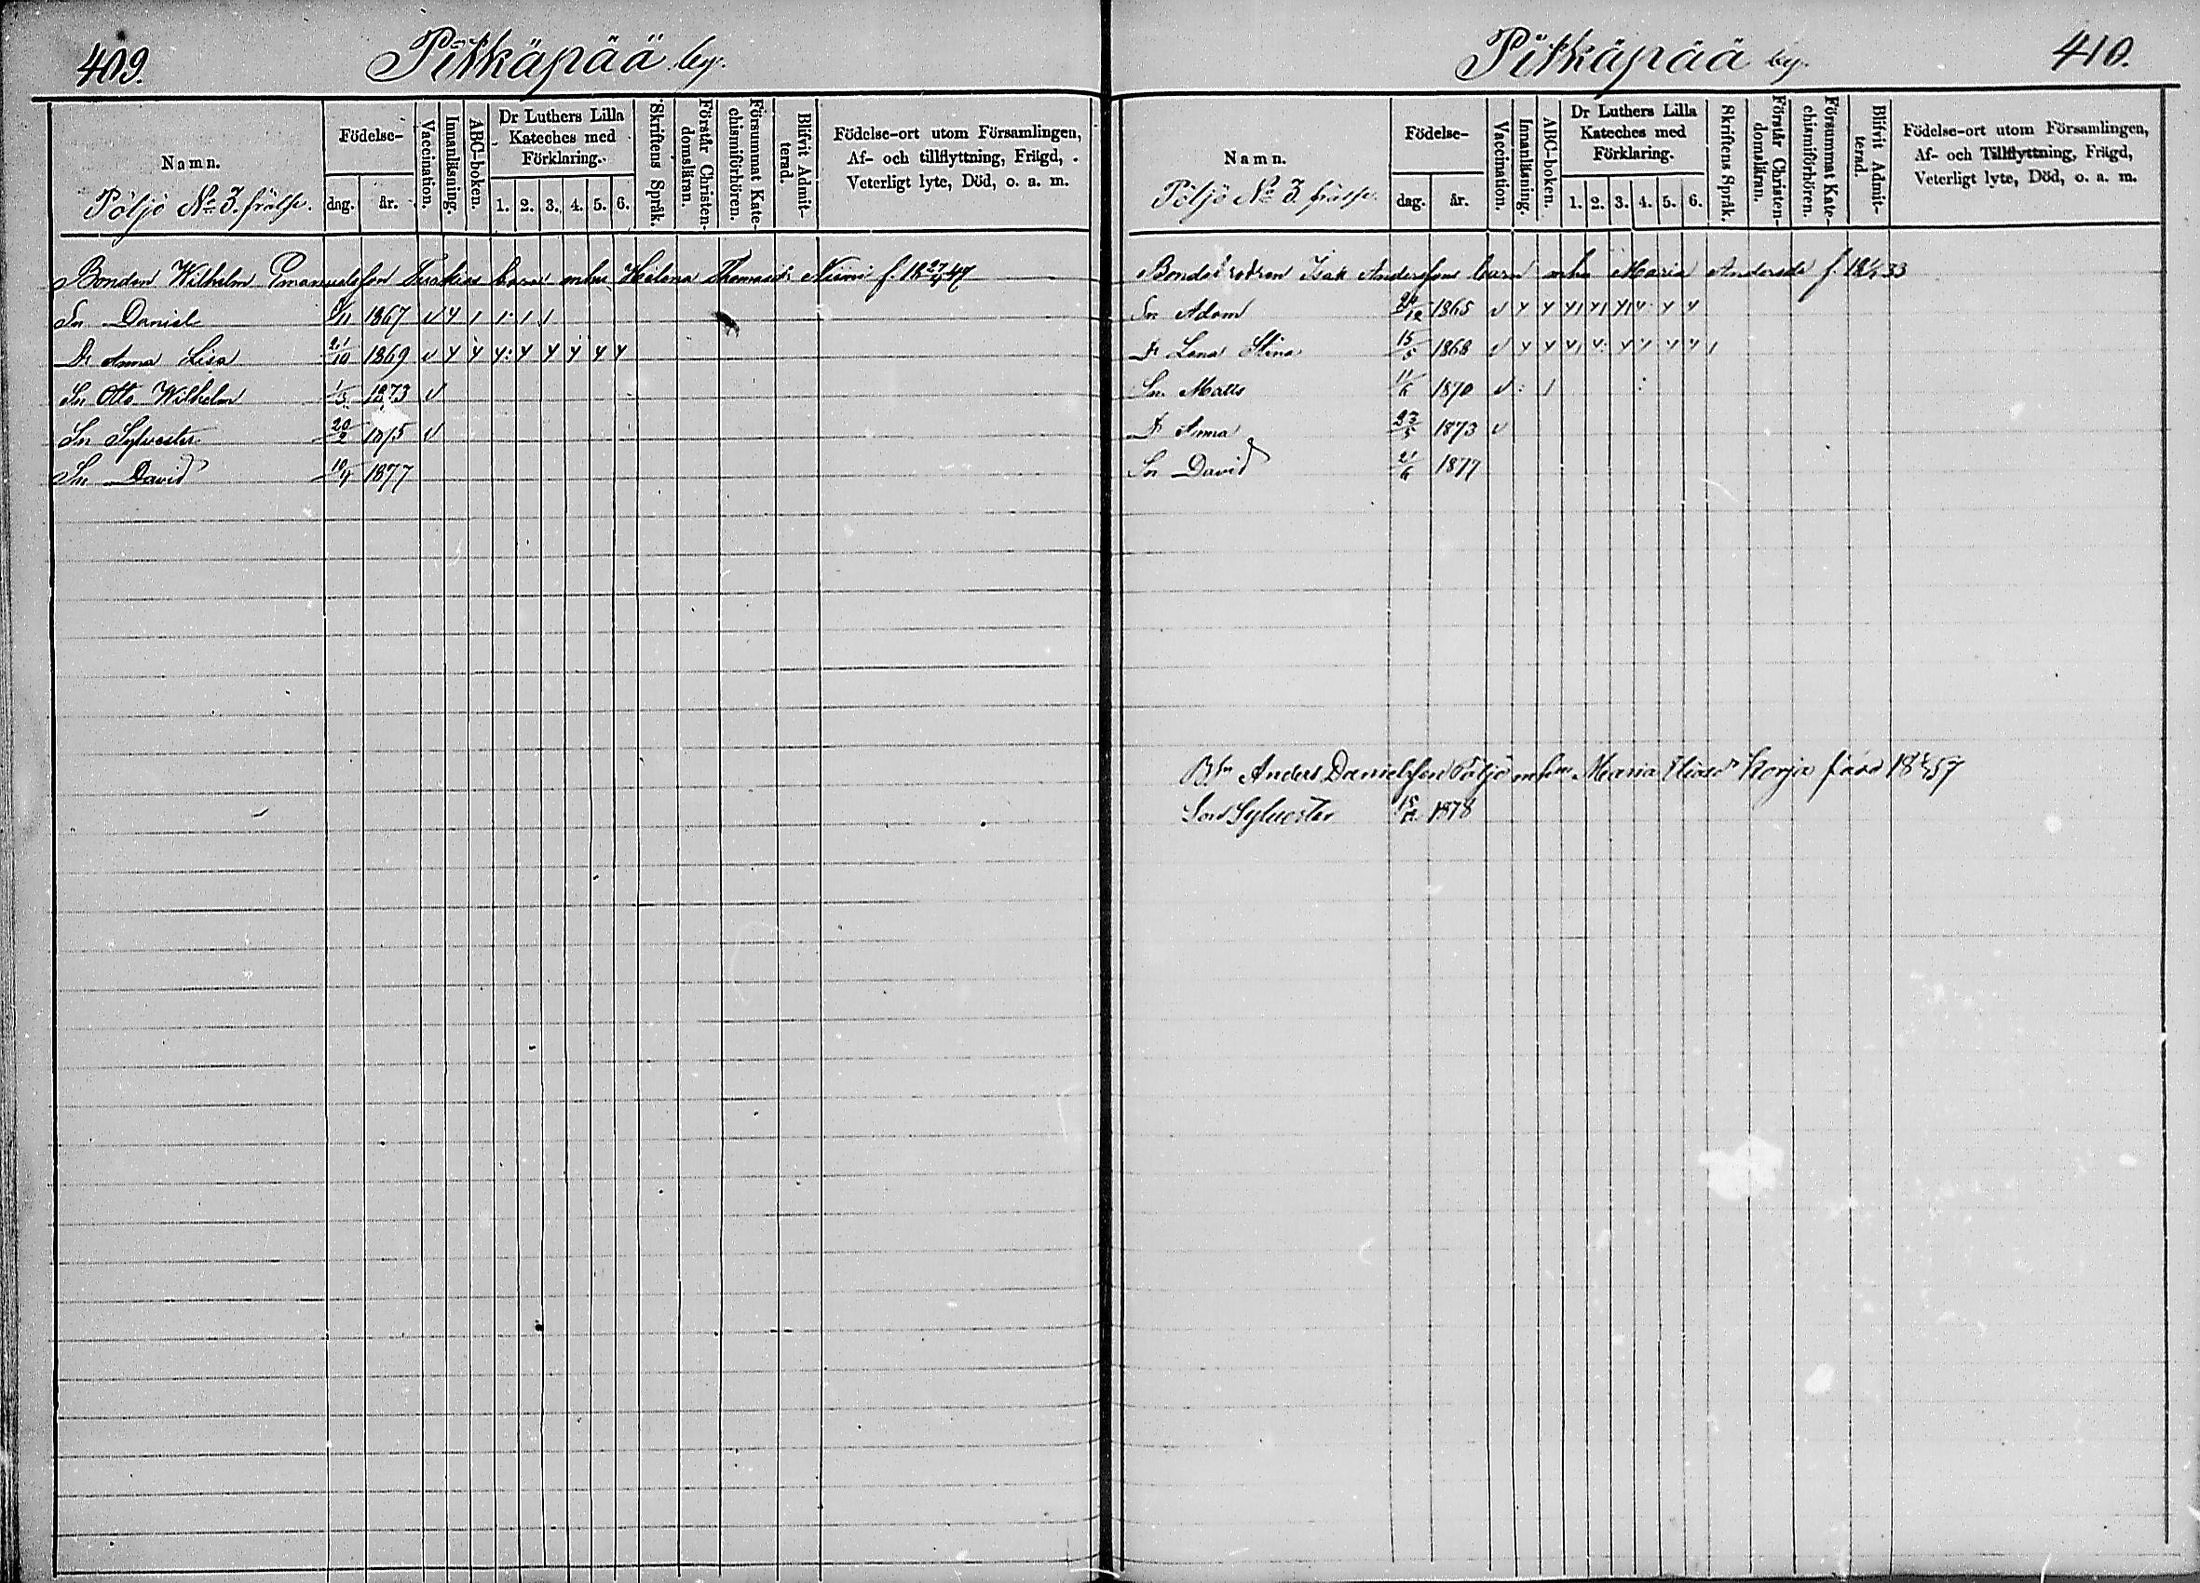 409.
Pitkäpää by.
Namn.
Pöljö No 3. frälse.
Födelse-
dag.
år.
Vaccination.
Innanläsning.
ABC-boken.
Dr Luthers Lilla
Kateches med
Förklaring.
1. 2. 3. 4. 5. 6.
Skriftens Språk.
Förstår Christen-
domsläran.
Försummat Kate-
chismiförhören.
Blifvit Admit-
terad.
Födelse-ort utom Församlingen,
Af- och tillflyttning, Frägd,
Veterligt lyte, Död, o. a. m.
Bonden Wilhelm Emanuelsson barn mhu Helena Thomasdr Niemi f. 18 27/4 47
Sn Daniel 1867 v
Dr Anna Lisa 21/10 1869 v
Sn Otto Wilhelm 1/3 1873 v
Sn Sylvester 20/2 1875 v
Sn David 19/4 1877
Pitkäpää by.
410.
Namn.
Pöljö No 3. frälse.
Födelse-
dag.
år.
Vaccination.
Innanläsning.
ABC-boken.
Dr Luthers Lilla
Kateches med
Förklaring.
1. 2. 3. 4. 5. 6.
Skriftens Språk.
Förstår Christen-
domsläran.
Försummat Kate-
chismiförhören.
Blifvit Admit-
terad.
Födelse-ort utom Församlingen,
Af- och Tillflyttning, Frägd,
Veterligt lyte, Död, o. a. m.
Bondebrodren Isak Anderssons barn mhu Maria Andersdr f. 33
Sn Adam 24/12 1865 v
Dr Lena Stina 15/5 1868 v
Sn Matts 11/6 1870 v
Dr Anna 23/5 1873 v
Sn David 21/6 1877
Anders Danielsson Pöljö mhu Maria Eliasdr Korja född 57
Son Sylvester 1878